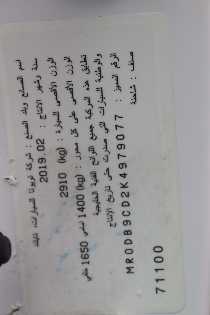 اسم الصانع وبلد الصنع : شركة تويوتا للسيارات، تايلاند
سنة وشهر الإنتاج : 2019.02
الوزن الأقصى للسيارة : (kg) 2910
الوزن الأقصى على كل محور : (kg) 1400 أمامي 1650 خلفي
تطابق هذه المركبة جميع اللوائح الفنية الخليجية
والوطنية للسيارات التي صدرت حتى تاريخ الإنتاج
الرقم المميز : MR0DB9CD2K4979077
صنف : شاحنة
71100